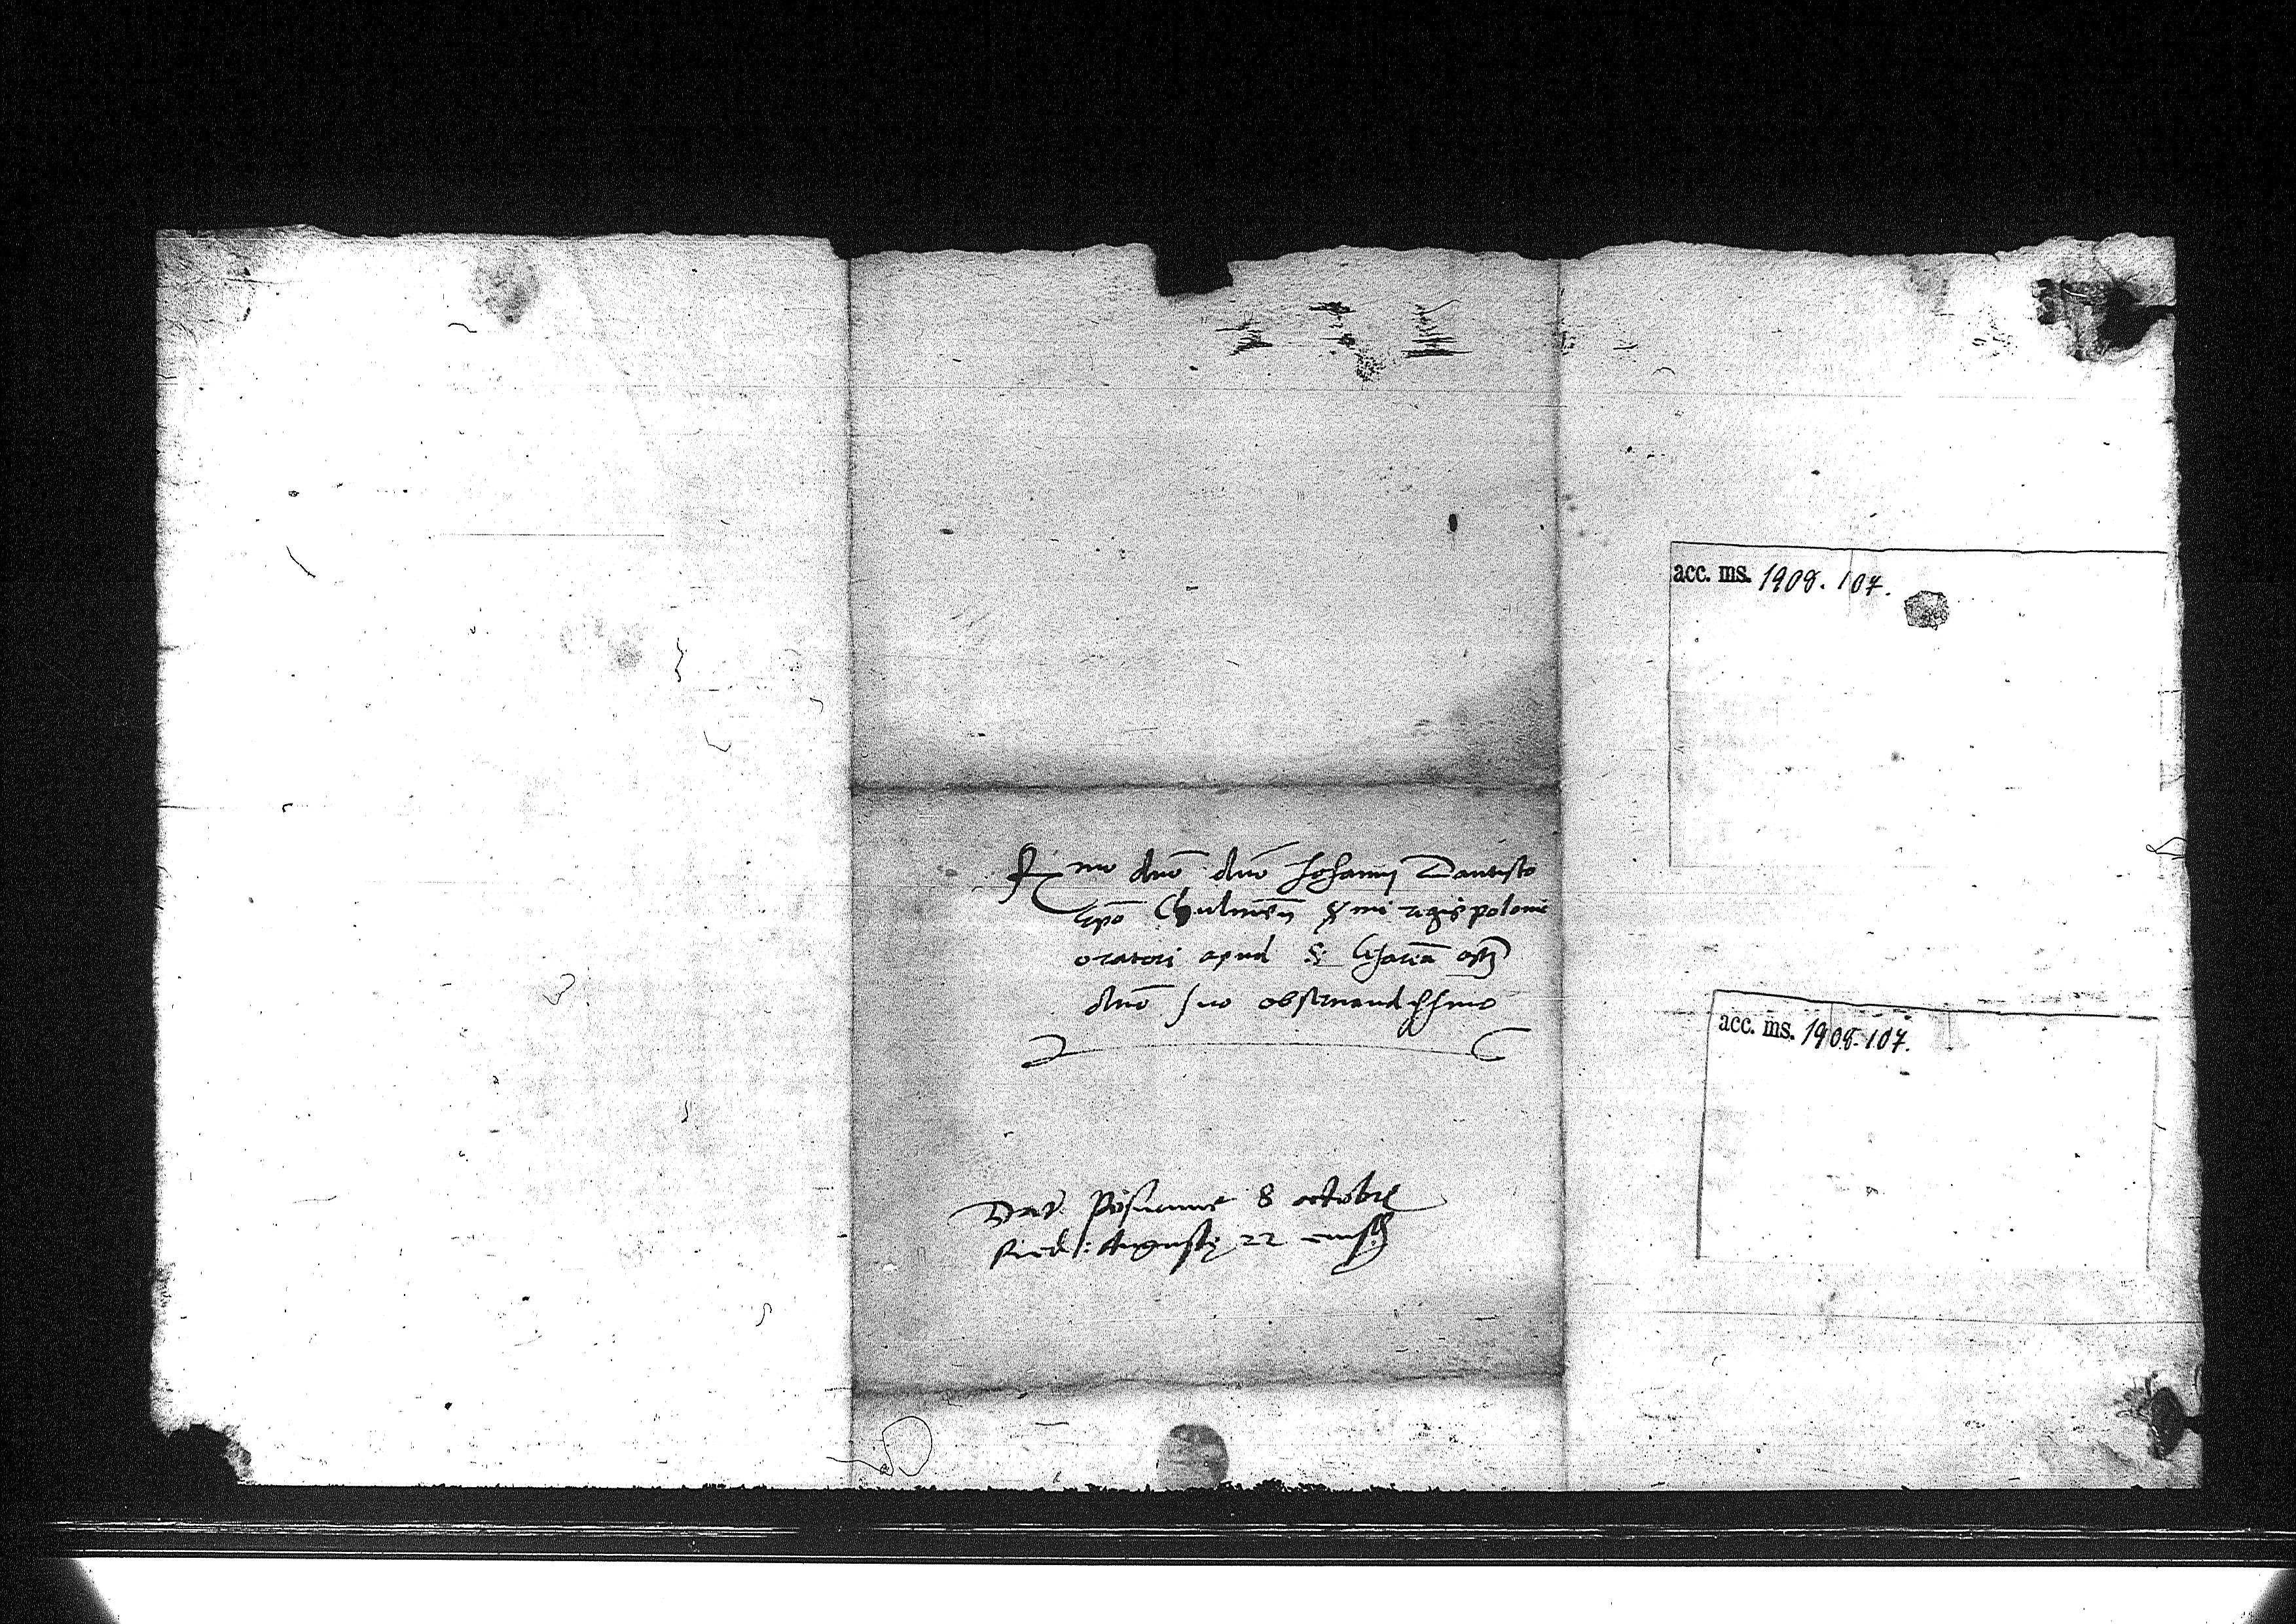 R mo dno dno Johanni Dantisco
Epo Chulmen Smi regis polonie
oratori apud S. Cesaream
dno suo observandissimo
Dat. Posnanie 8 octobris
Augustę 22
acc. ms. 1908. 107.
acc. ms. 1908. 107.